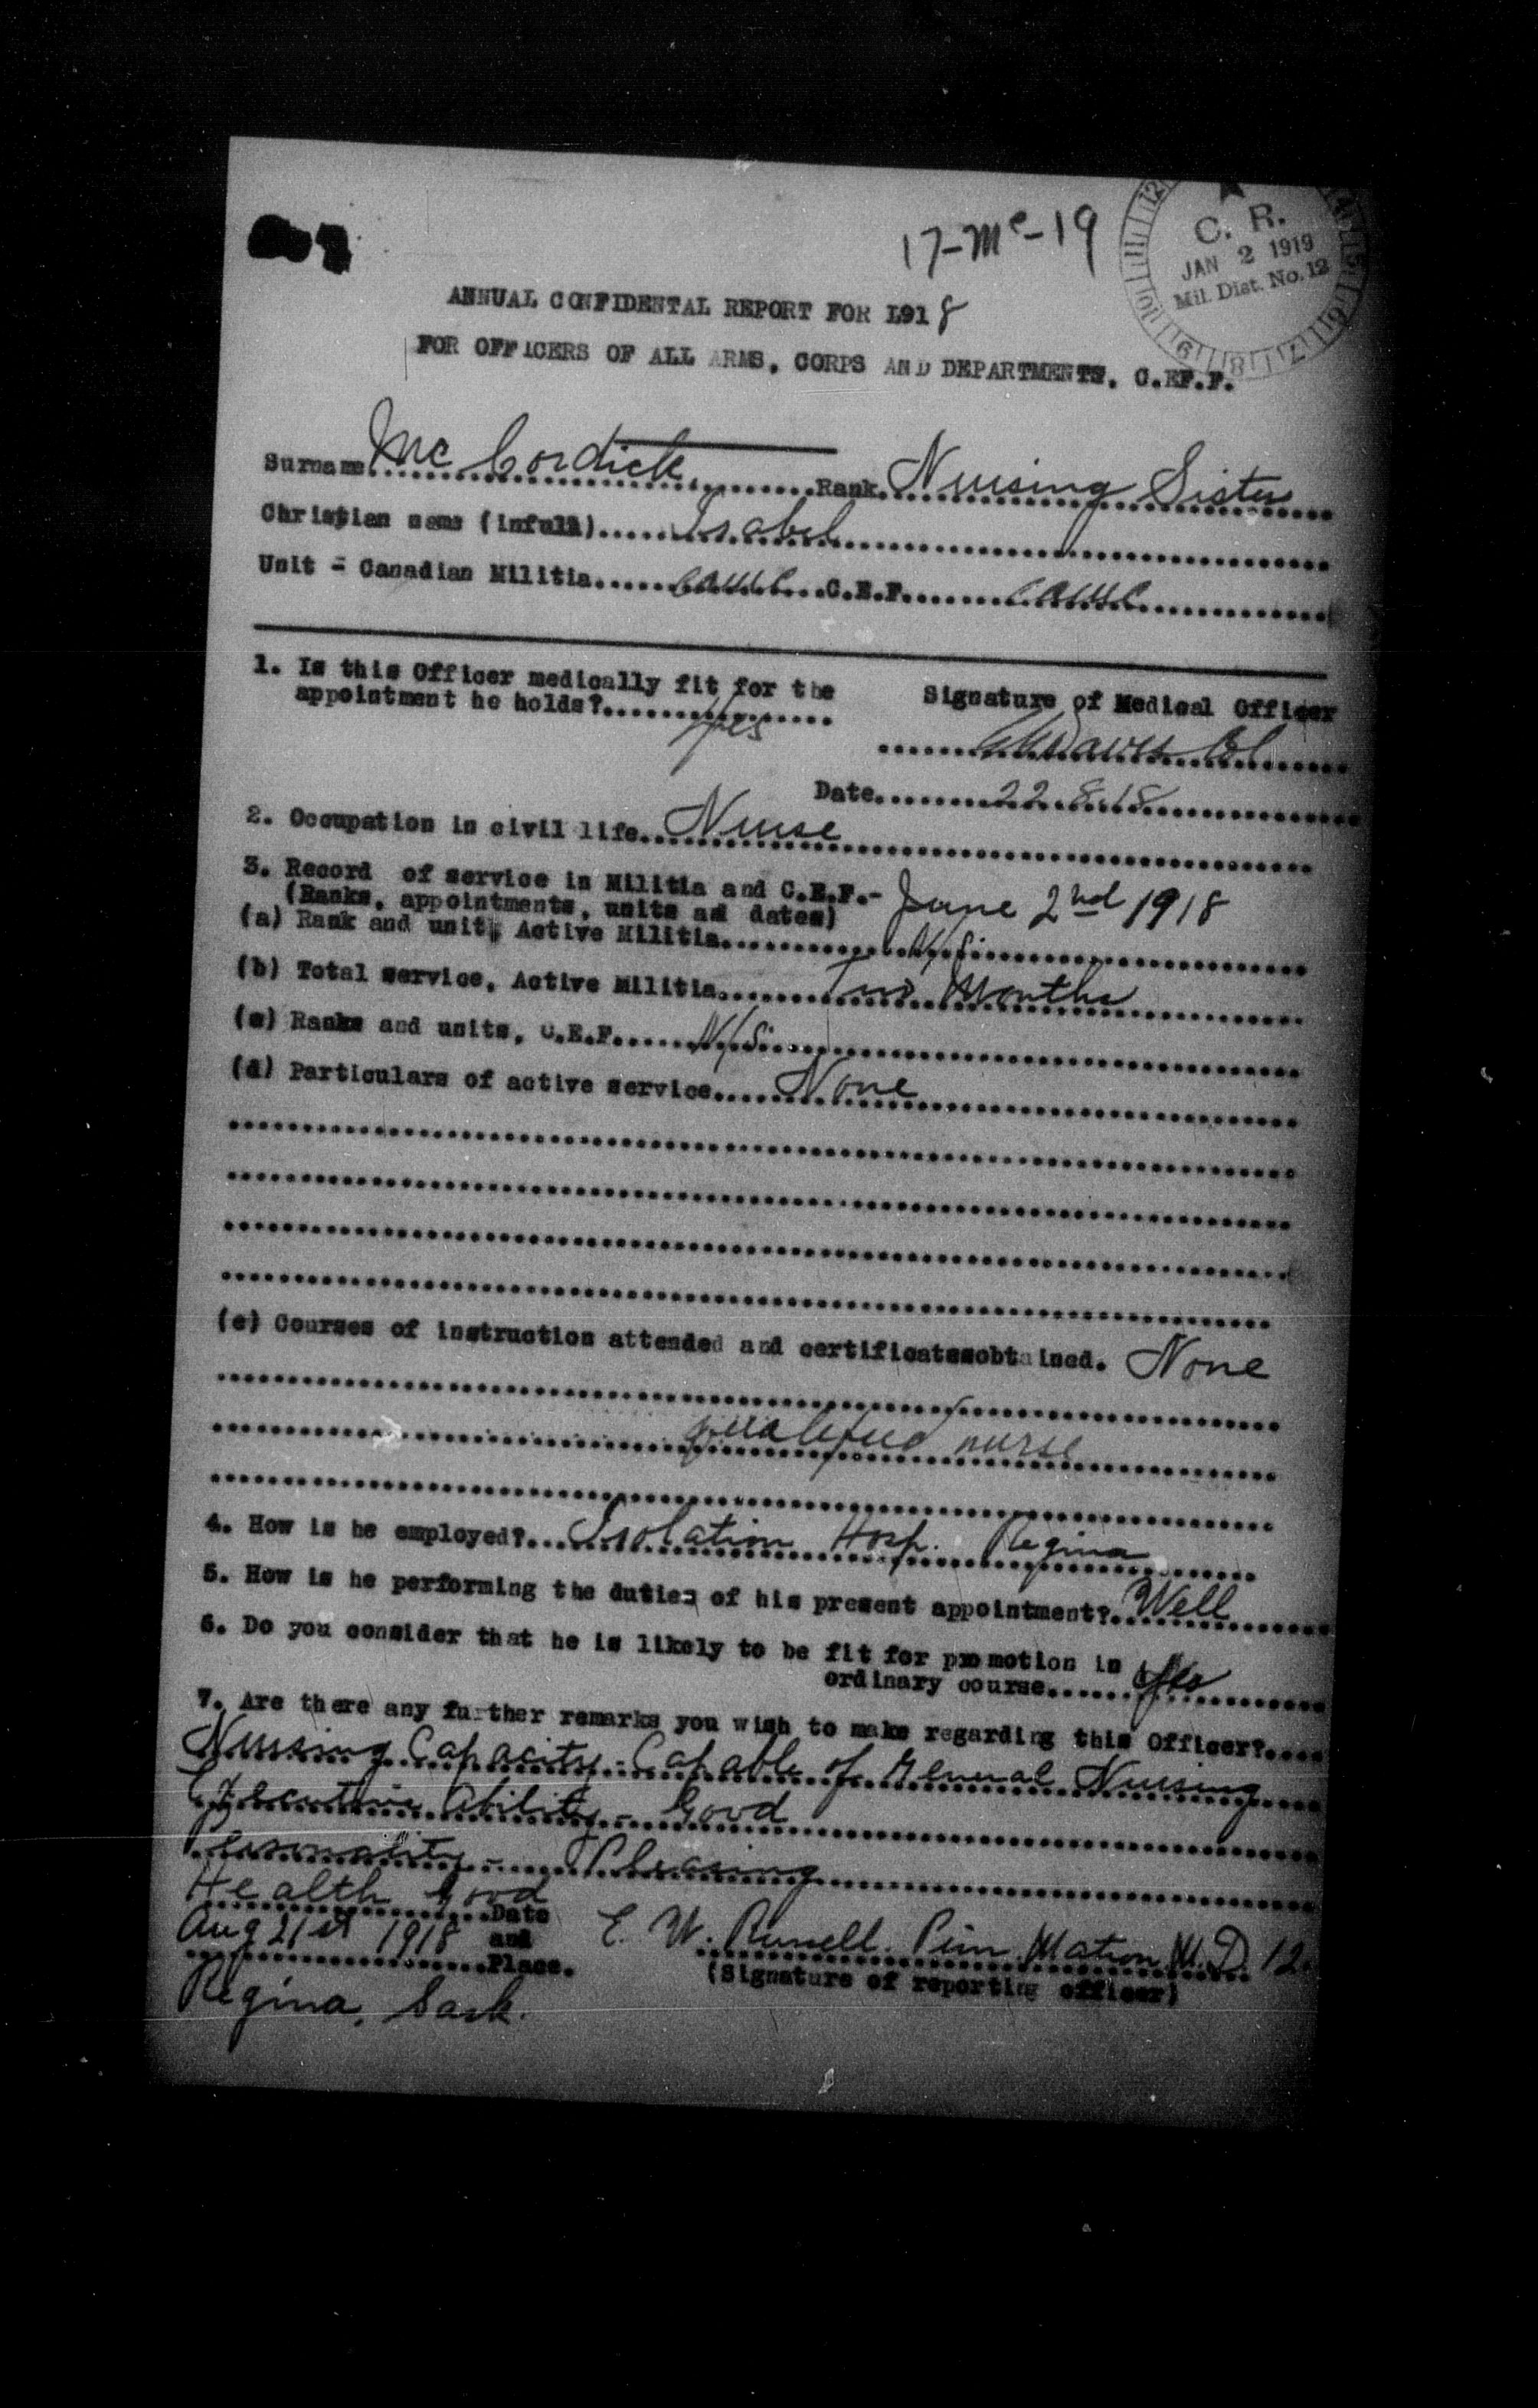 17-Mc-19
C. R.
JAN 2 1919
Mil. Dist. No. 12
ANNUAL CONFIDENTAL REPORT FOR L918
FOR OFFICERS OF ALL ARMS, CORPS AND DEPARTMENTS, C.EF.F.
Surname McCordick Rank Nursing Sister
Christian name (infull) Isabel
Unit - Canadian Militia CAMC C.E.F. CAMC
1. Is this Officer medically fit for the
appointment he holds? Yes
Signature of Medical Officer
Date 22.8.18
2. Occupation in civil life Nurse
3. Record of service in Militia and C.E.F.- June 2nd 1918
(Ranks, appointments, units ad dates)
(a) Rank and unit, Active Militia N/S.
(b) Total service, Active Militia Two Months
(c) Ranks and units, C.E.F. N/S.
(d) Particulars of active service None
(e) Courses of instruction attended and certificates obtained. None
qualified nurse
4. How is he employed? Isolation Hosp. Regina
5. How is he performing the duties of his present appointment? Well
6. Do you consider that he is likely to be fit for promotion in
ordinary course Yes
7. Are there any further remarks you wish to make regarding this Officer?
Nursing Capacity - Capable of General Nursing
Executive Ability - Good
Personality - Pleasing
Health Good
Date
Aug 21st 1918 and
Place.
E. W. Russell. Prin. Matron M.D. 12.
(Signature of reporting officer)
Regina, Sask.